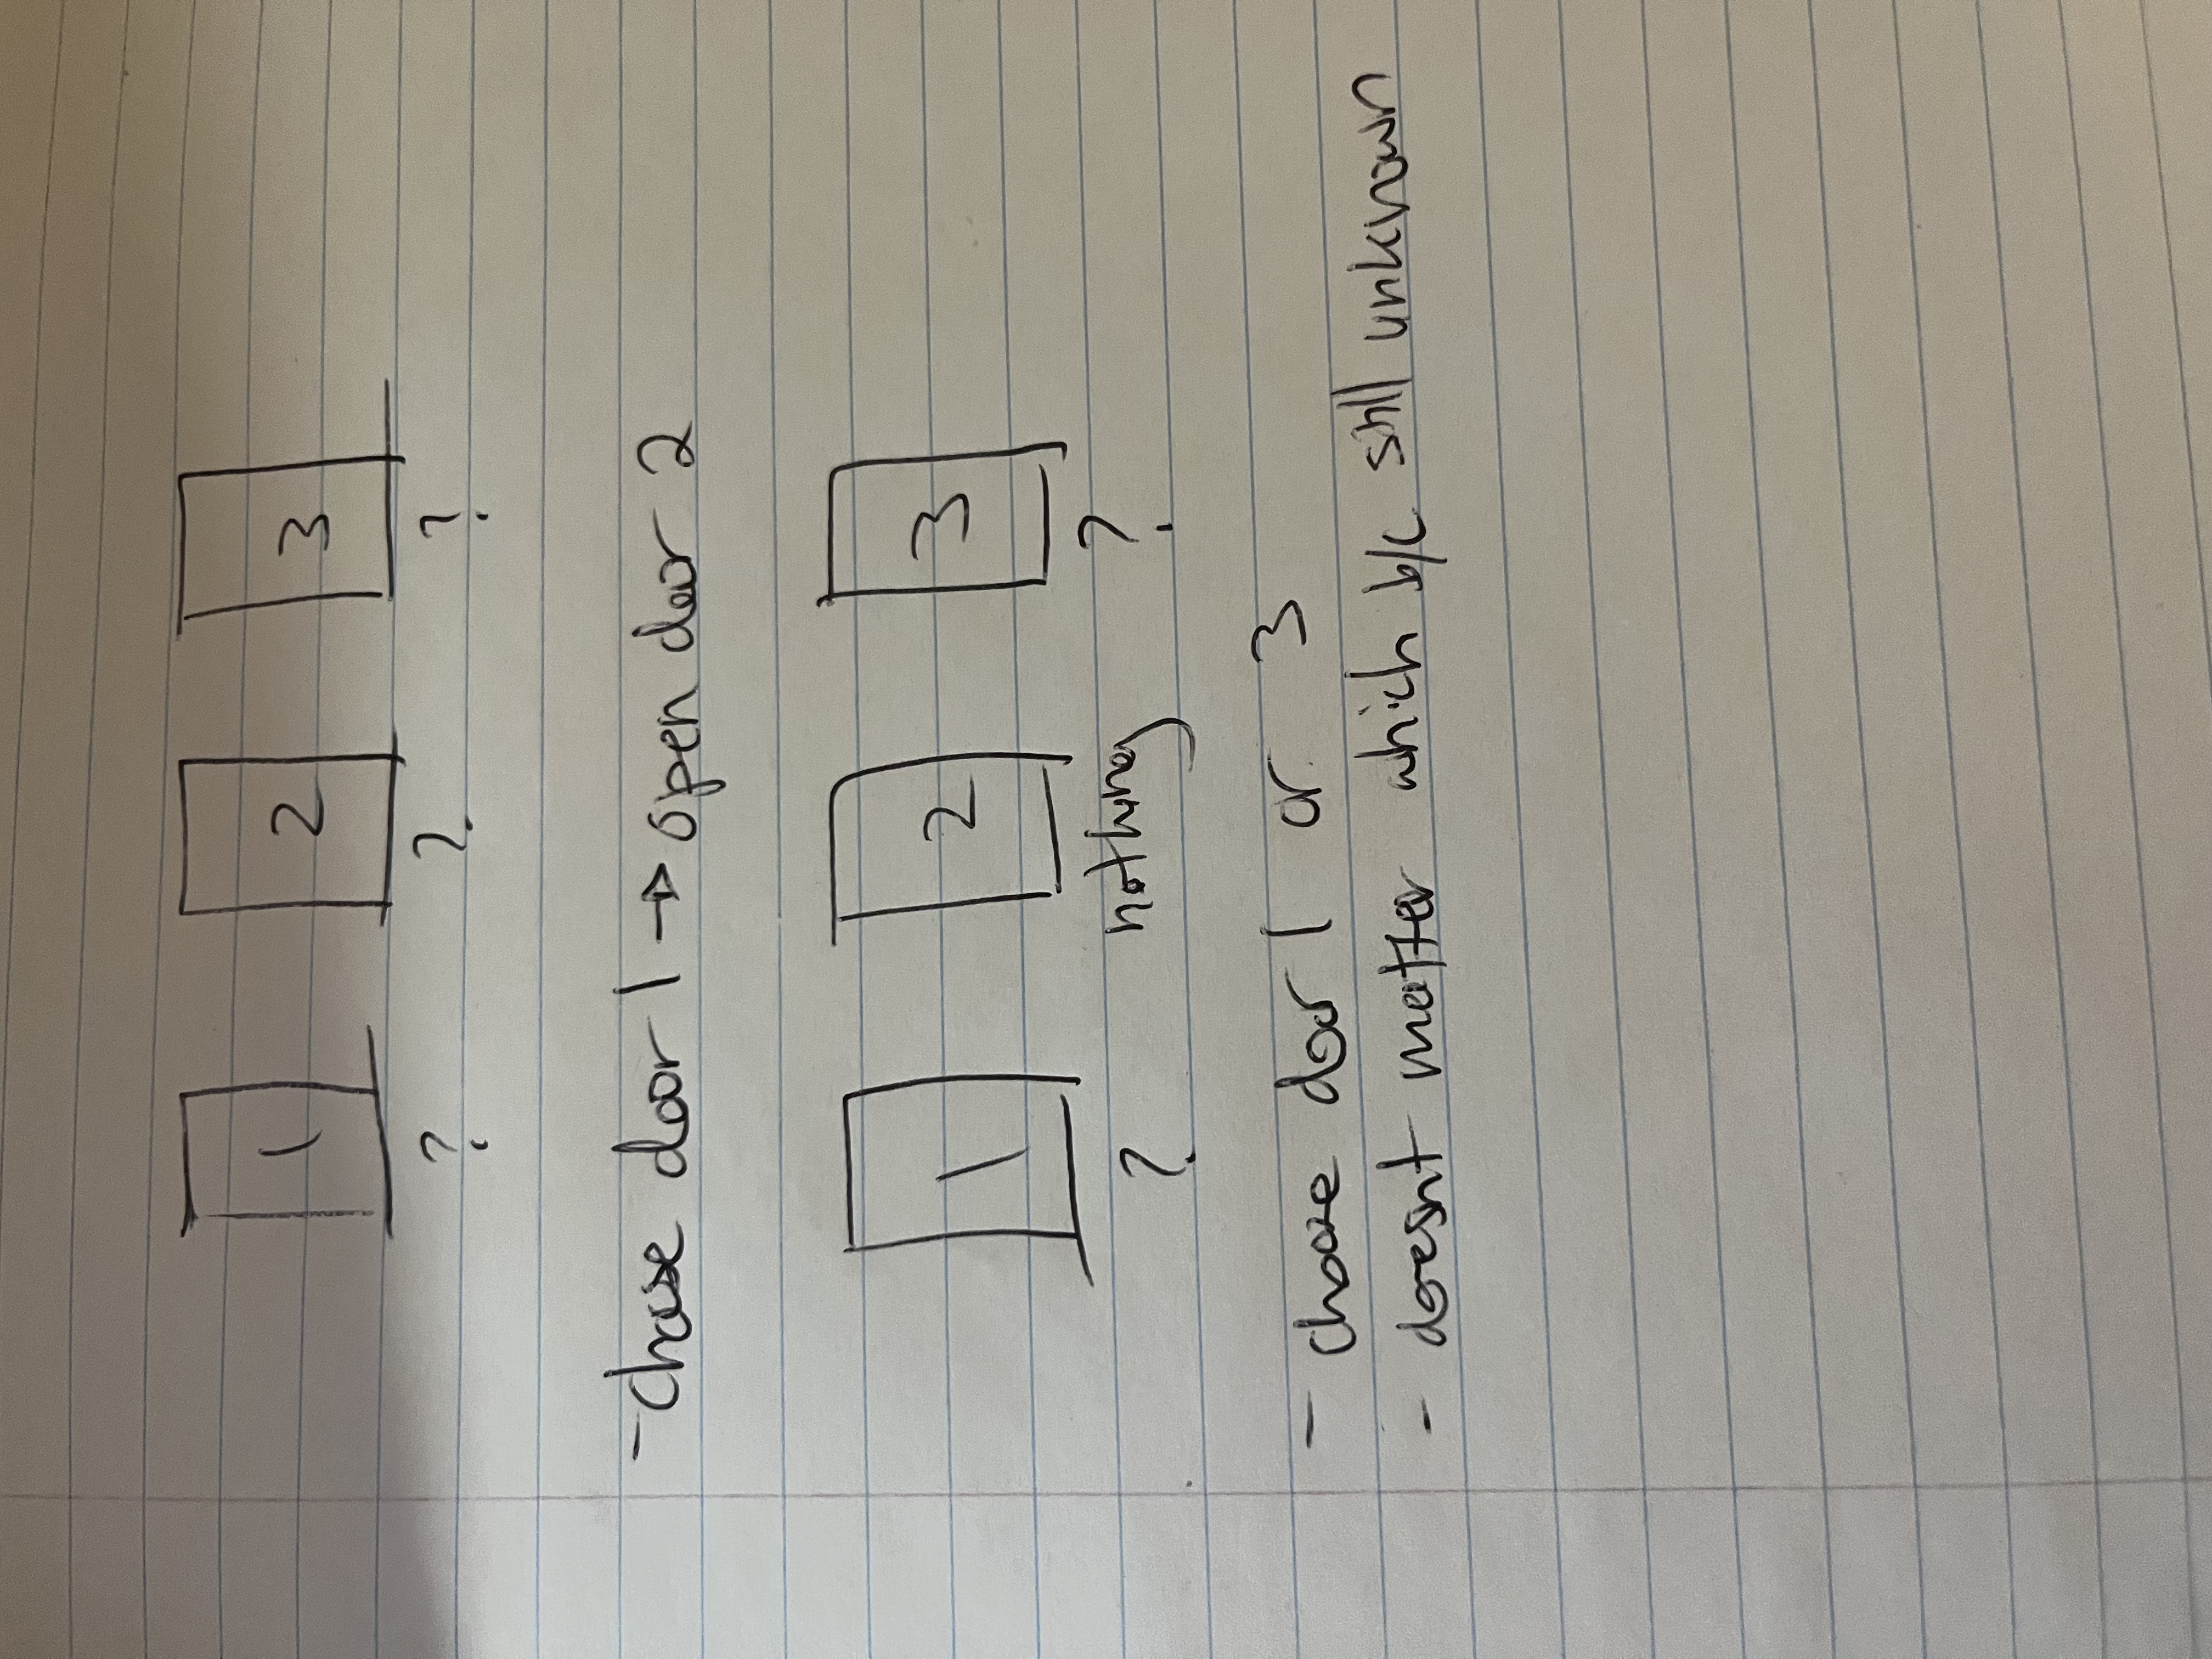 1 2 3
? ? ?
- choose door 1 → open door 2
1 2 3
? nothing ?
- choose door 1 or 3
- doesnt matter which b/c still unknown